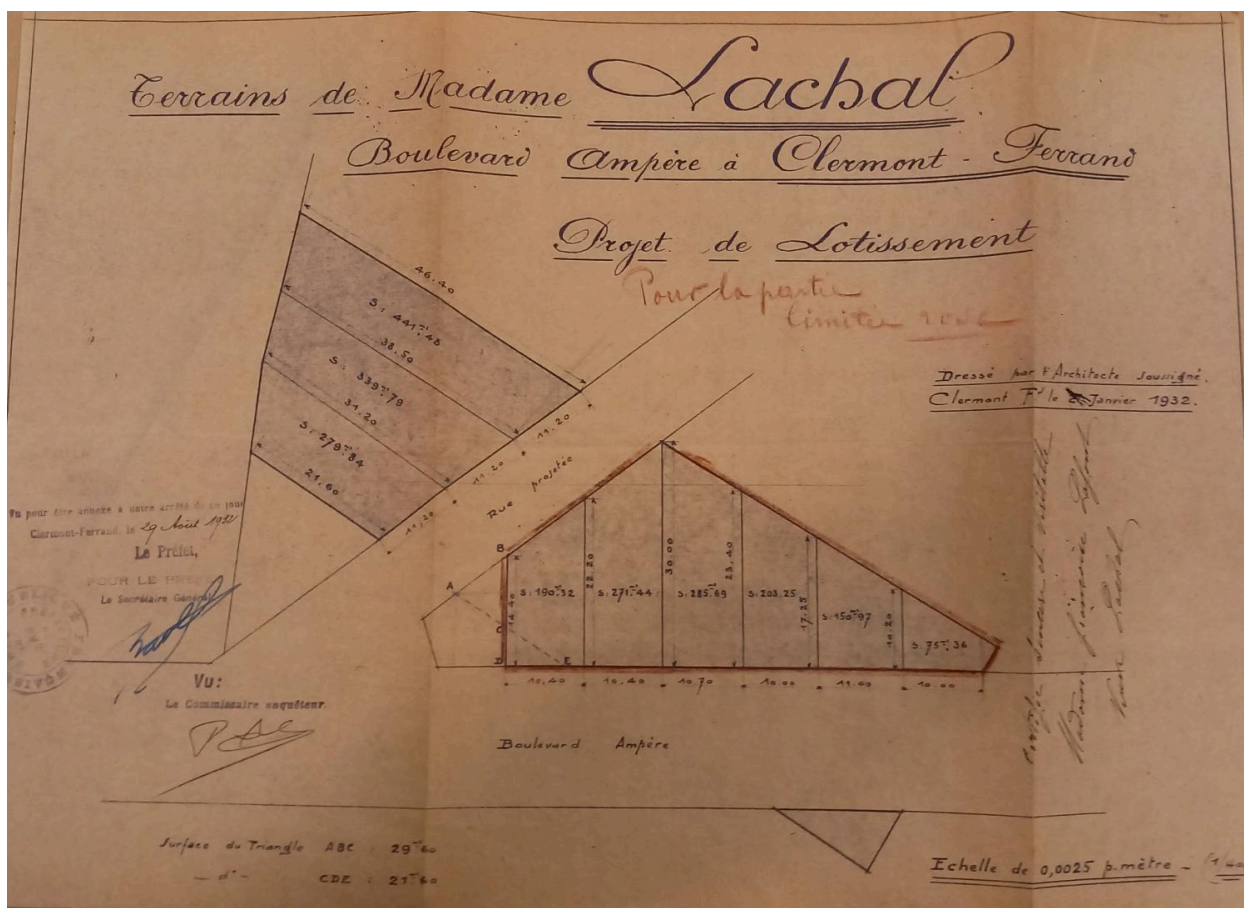 Terrains de Madame Lachal
Boulevard Ampère à Clermont-Ferrand
Projet de Lotissement
Pour la partie
limitée
Dressé par l'Architecte soussigné.
Clermont Fd le Janvier 1932.
46.40
S: 441m²48
38.50
S: 339m²79
31.20
S: 279m²84
21.60
11.20
11.20
11.20
Rue projetée
Vu pour être annexé à notre arrêté de ce jour
Clermont-Ferrand, le 29 Août 1932
Le Préfet,
POUR LE PRÉFET
Le Secrétaire Général
Vu:
Le Commissaire enquêteur.
A
B
D
E
14.40
S: 190m²32
22.20
S: 271m²44
30.00
S: 285.69
23.40
S: 203.25
17.25
S: 150m²97
10.20
S. 75m²36
10.40
10.40
10.70
10.00
11.00
10.00
Boulevard Ampère
Madame
Surface du Triangle ABC : 29m²60
- d° - CDE : 21m²60
Echelle de 0,0025 p. mètre -